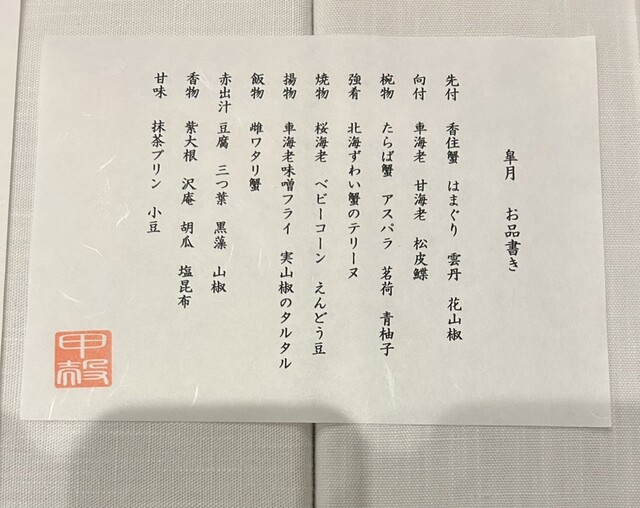 皐月　お品書き
先付　香住蟹　はまぐり　雲丹　花山椒
向付　車海老　甘海老　松皮鰈
椀物　たらば蟹　アスパラ　茗荷　青柚子
強肴　北海ずわい蟹のテリーヌ
焼物　桜海老　ベビーコーン　えんどう豆
揚物　車海老味噌フライ　実山椒のタルタル
飯物　雌ワタリ蟹
赤出汁　豆腐　三つ葉　黒藻　山椒
香物　紫大根　沢庵　胡瓜　塩昆布
甘味　抹茶プリン　小豆
甲殻